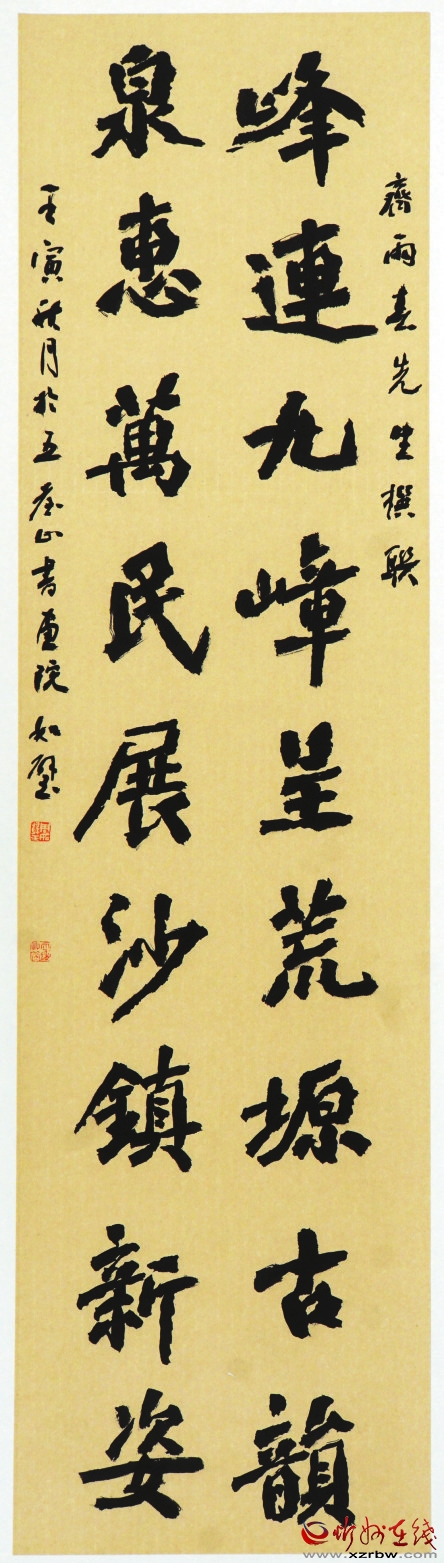 齊雨春先生撰联
峰連九嶂呈荒塬古韻
泉惠萬民展沙鎮新姿
壬寅秋月於五台山書画院如璧
忻州在线
www.xzrbw.com